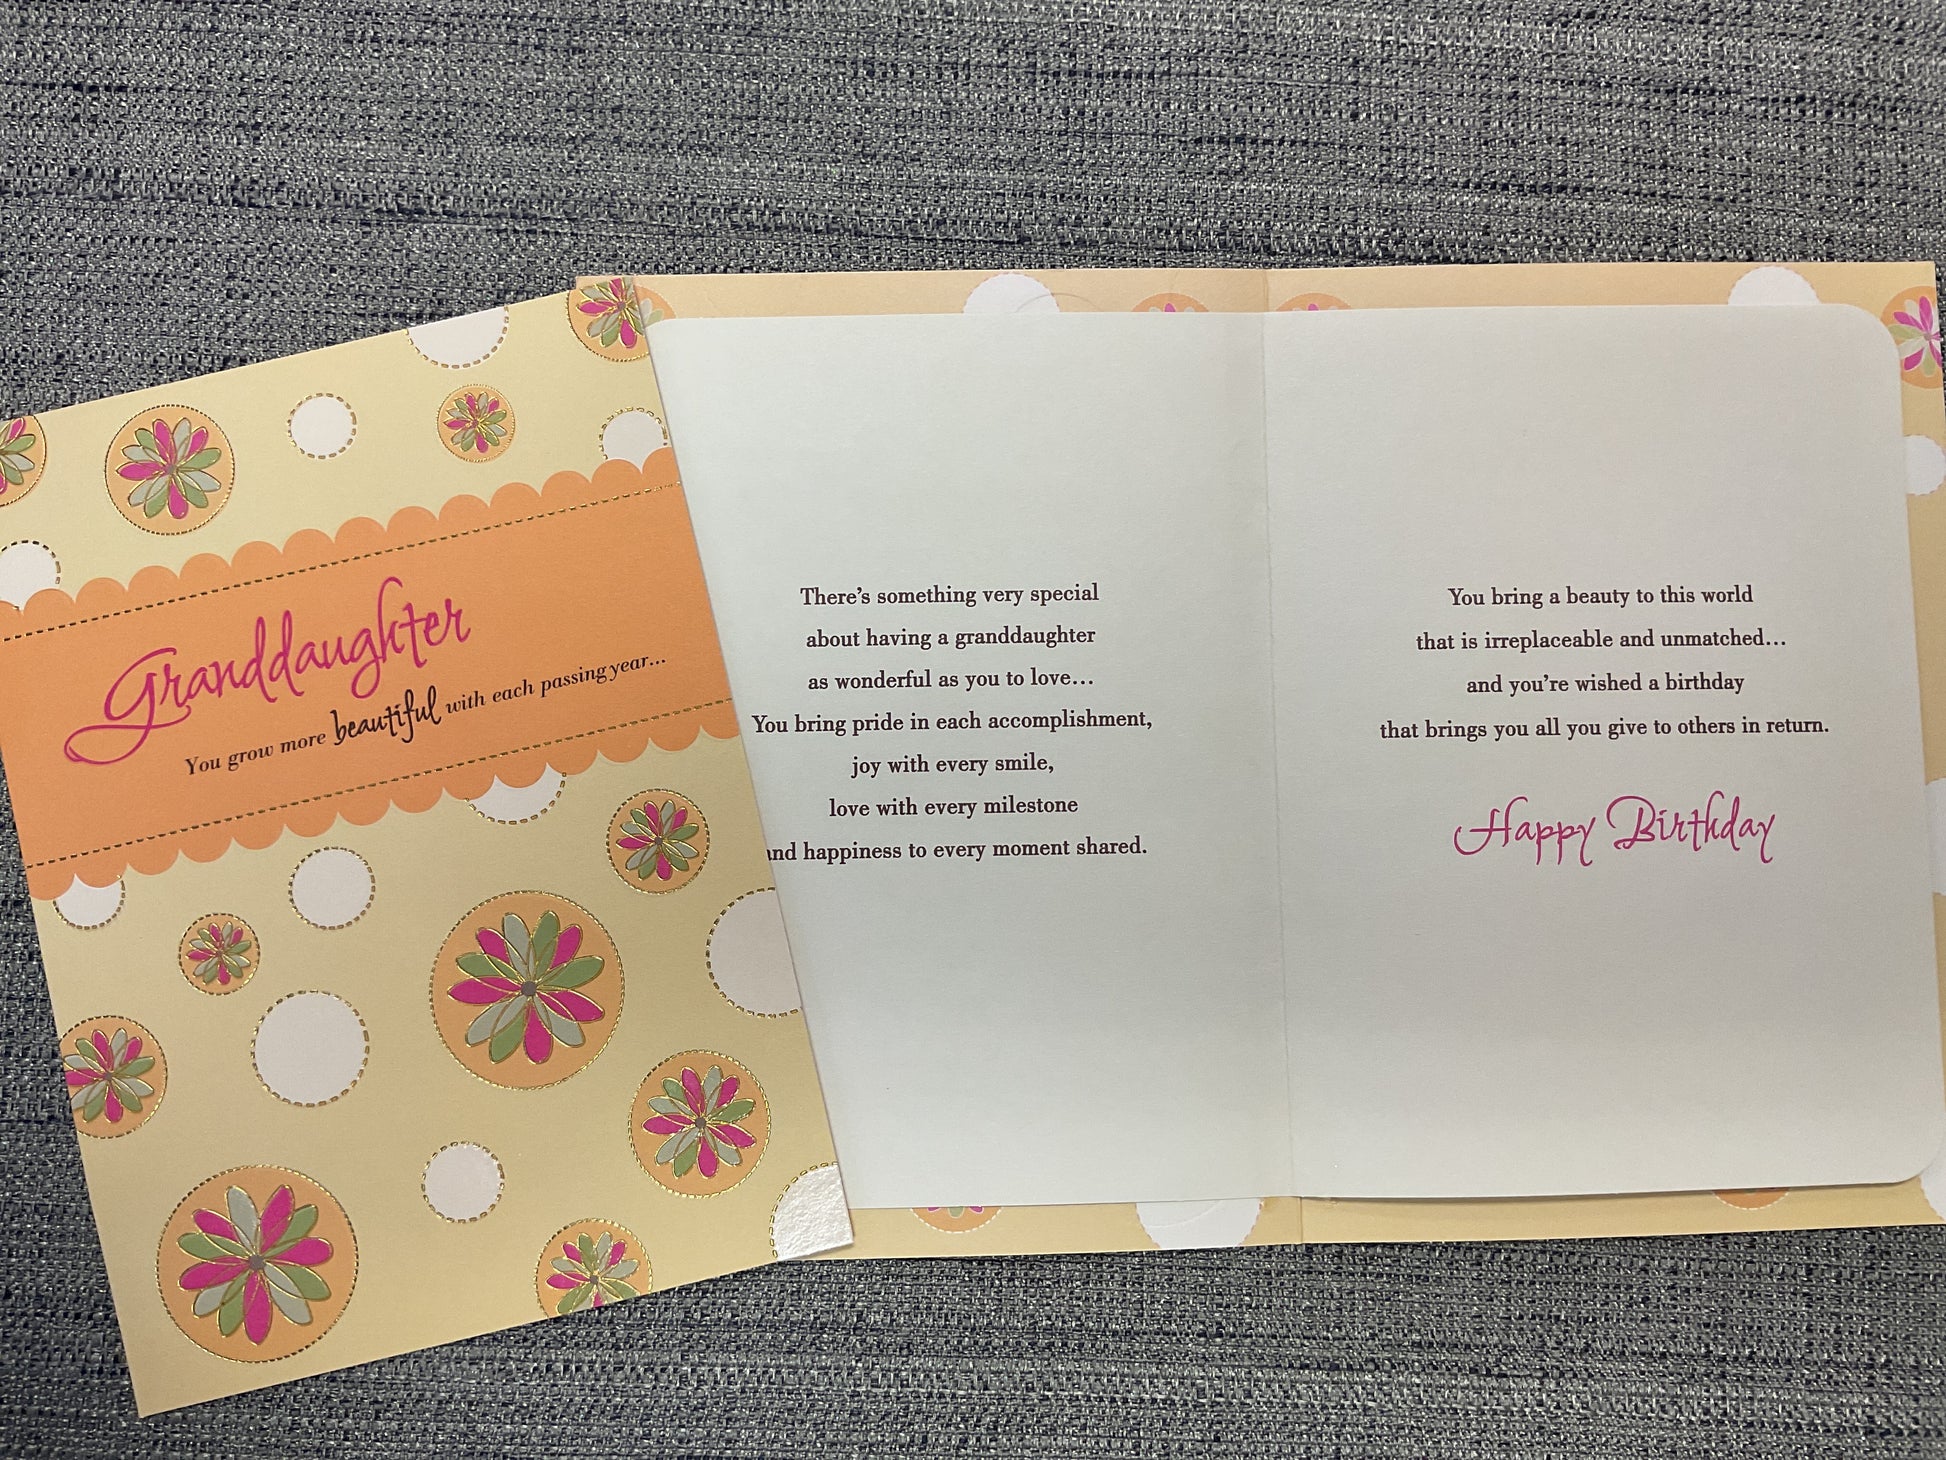 Granddaughter
You grow more beautiful with each passing year...
There's something very special
about having a granddaughter
as wonderful as you to love...
You bring pride in each accomplishment,
joy with every smile,
love with every milestone
and happiness to every moment shared.
You bring a beauty to this world
that is irreplaceable and unmatched...
and you're wished a birthday
that brings you all you give to others in return.
Happy Birthday